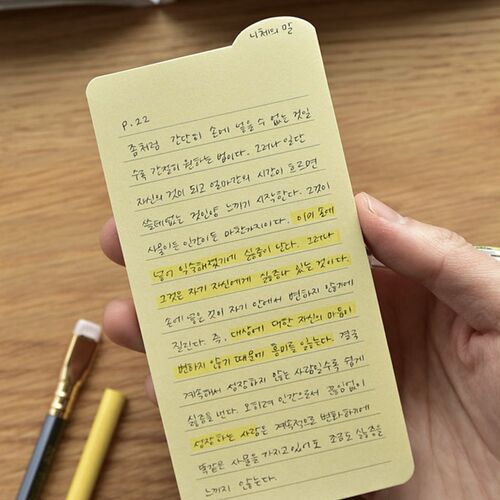 니체의 말
P.22
좀처럼 간단히 손에 넣을 수 없는 것일
수록 간절히 원하는 법이다. 그러나 일단
자신의 것이 되고 얼마간의 시간이 흐르면
쓸데없는 것인양 느끼기 시작한다. 그것이
사물이든 인간이든 마찬가지다. 이미 손에
넣어 익숙해졌기에 싫증이 난다. 그러나
그것은 자기 자신에게 싫증나 있는 것이다.
손에 넣은 것이 자기 안에서 변하지 않기에
질린다. 즉, 대상에 대한 자신의 마음이
변하지 않기 때문에 흥미를 잃는다. 결국
계속해서 성장하지 않는 사람일수록 쉽게
싫증을 낸다. 오히려 인간으로서 끊임없이
성장하는 사람은 계속적으로 변화하기에
똑같은 사물을 가지고 있어도 조금도 싫증을
느끼지 않는다.